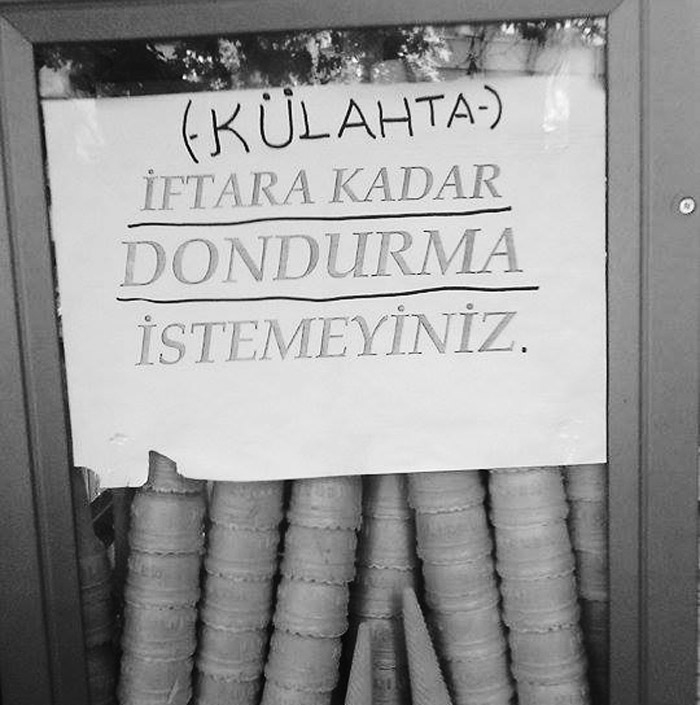 (-KÜLAHTA-)
İFTARA KADAR
DONDURMA
İSTEMEYİNİZ.